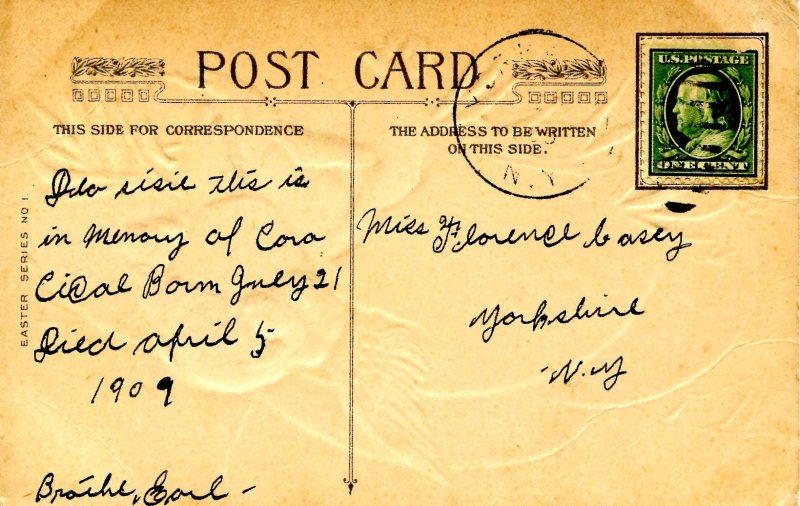 POST CARD
THIS SIDE FOR CORRESPONDENCE
THE ADDRESS TO BE WRITTEN
ON THIS SIDE.
U.S. POSTAGE
ONE CENT
N.Y.
EASTER SERIES NO 1.
sisie this is
in Memory of Cora
Born July 21
Died april 5
1909
Earl -
Miss Florence Casey
Yorkshire
N.Y